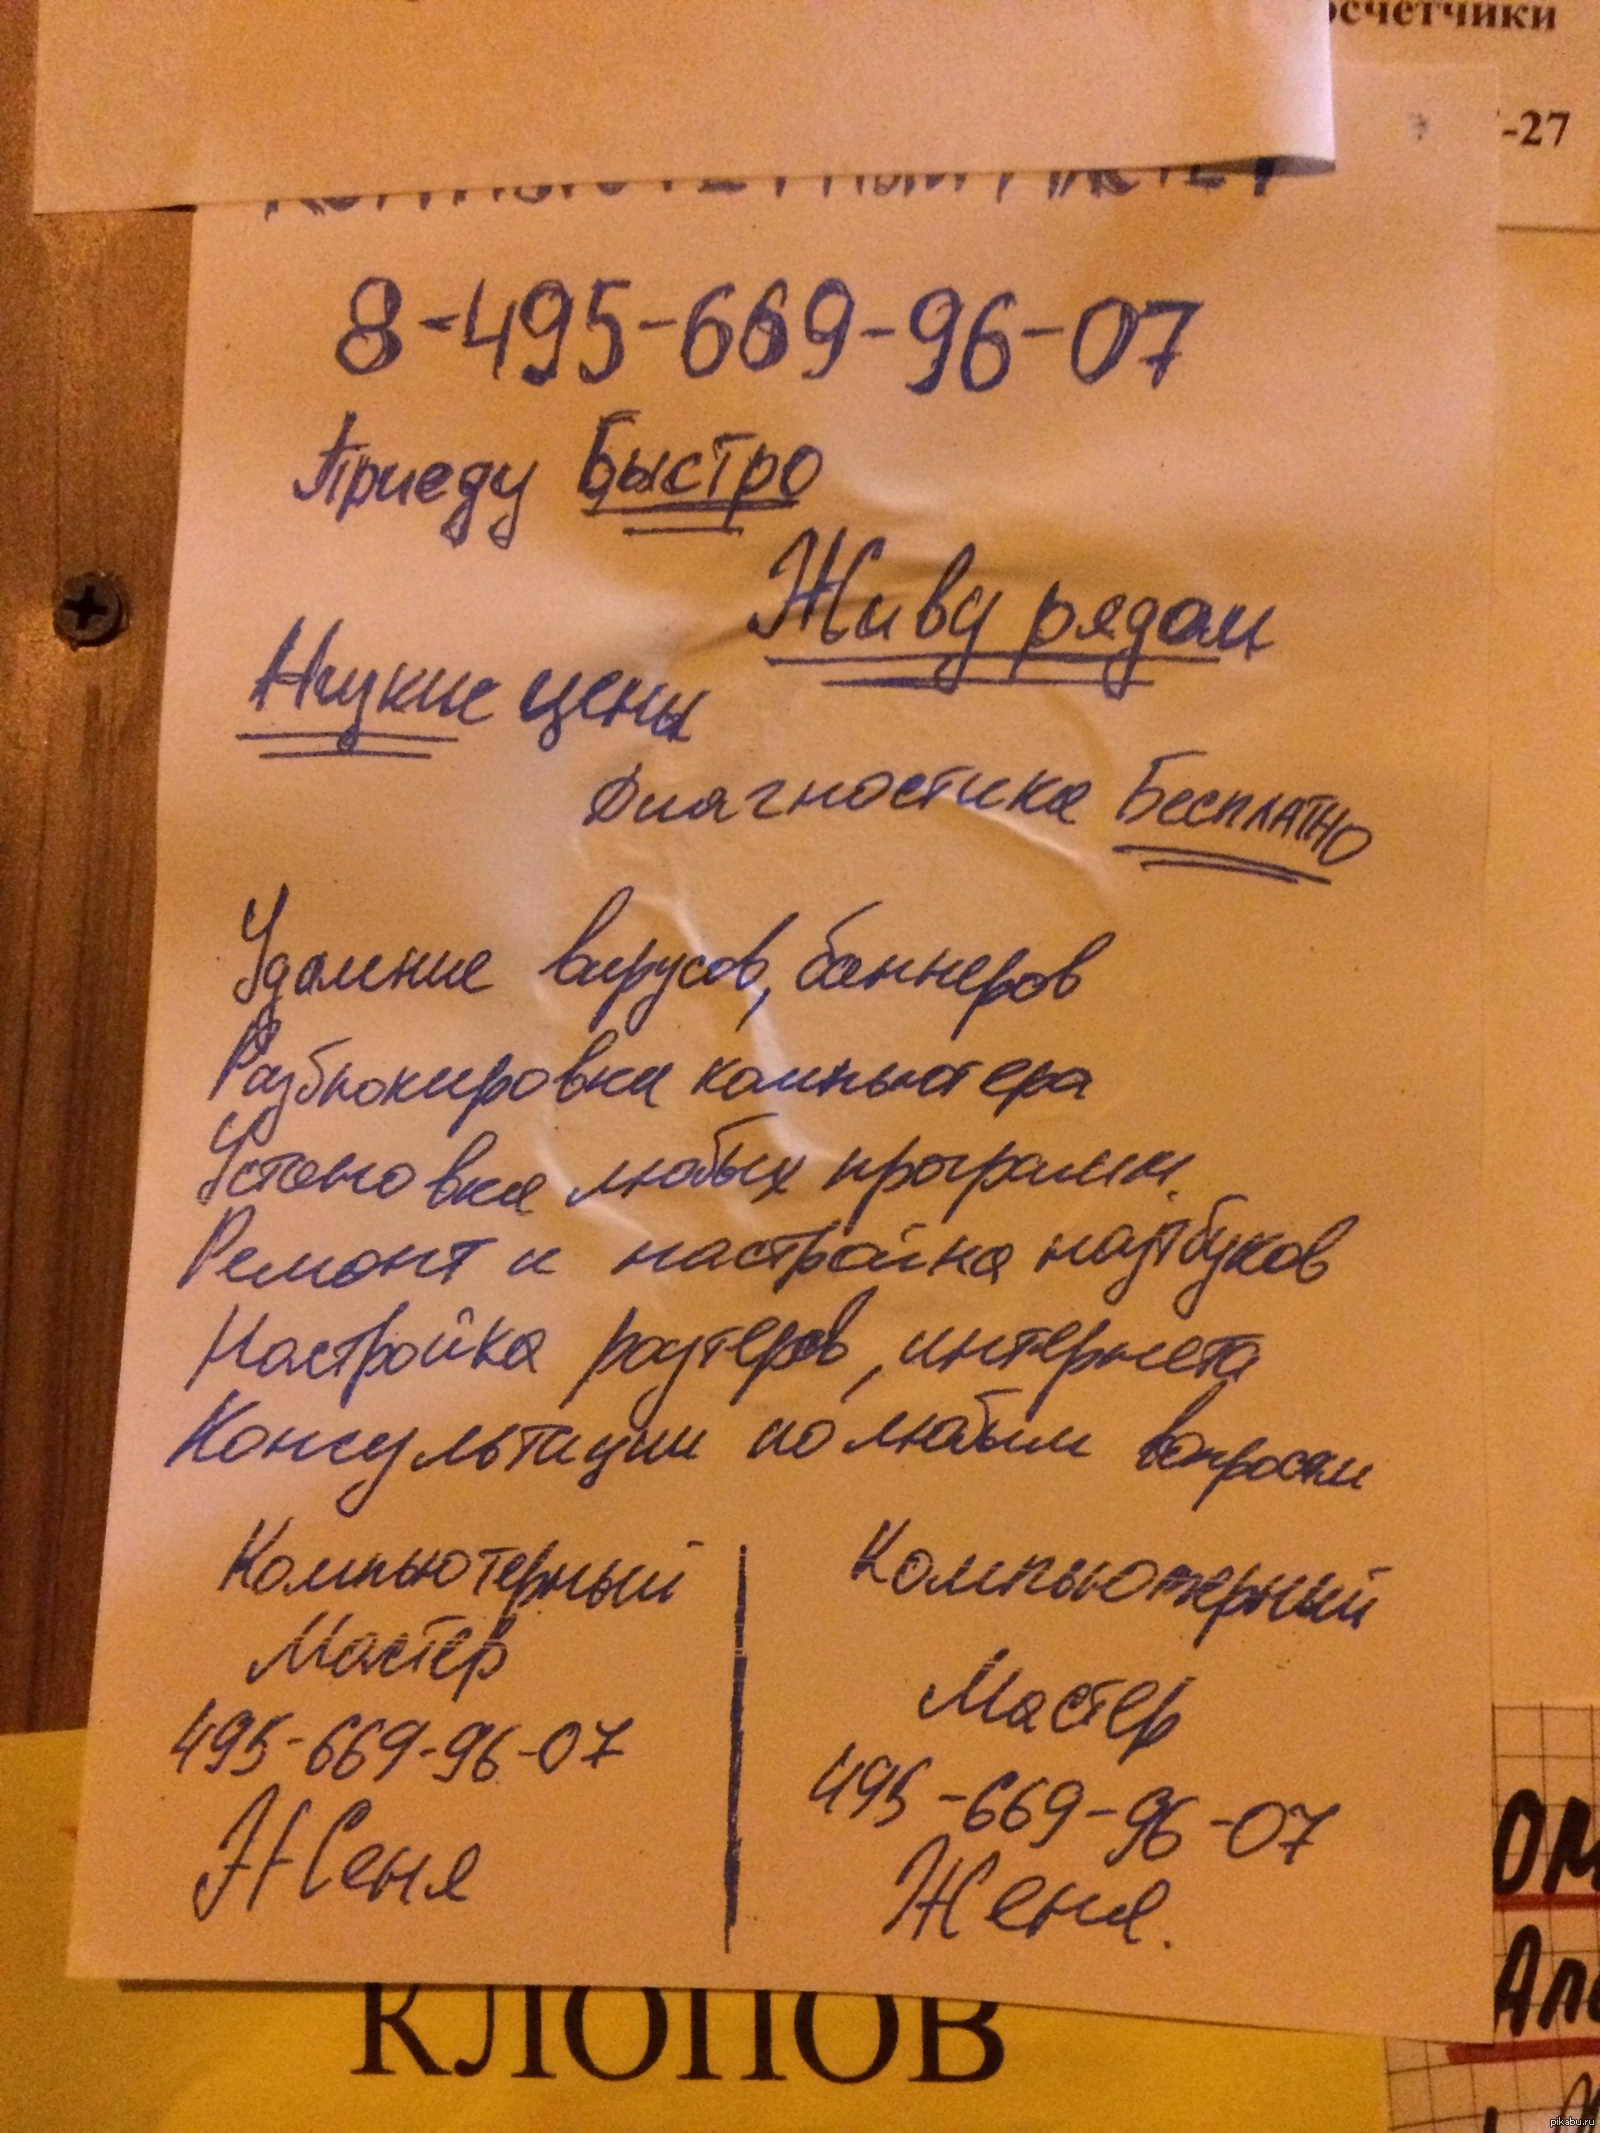 -27
8-495-669-96-07
Приеду Быстро
Живу рядом
Низкие цены
Диагностика Бесплатно
Удаление вирусов, баннеров
Разблокировка компьютера
Установка любых программ.
Ремонт и настройка ноутбуков
Настройка роутеров, интернета
Консультации по любым вопросам
Компьютерный
Мастер
495-669-96-07
Женя
Компьютерный
Мастер
495-669-96-07
Женя.
КЛОПОВ
pikabu.ru